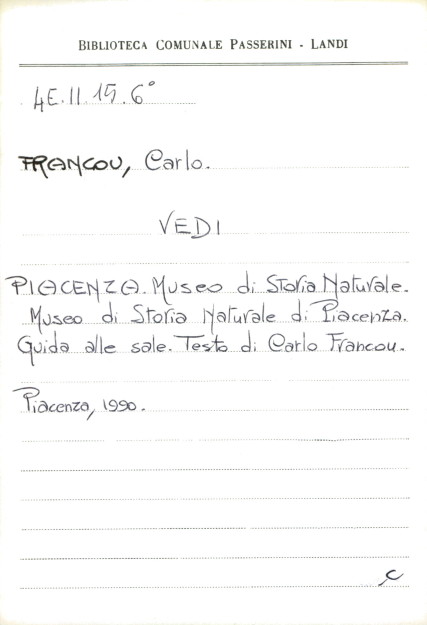 BIBLIOTECA COMUNALE PASSERINI - LANDI
4E.II.15.6°
FRANCOU, Carlo.
VEDI
PIACENZA. Museo di Storia Naturale.
Museo di Storia Naturale di Piacenza.
Guida alle sale. Testo di Carlo Francou.
Piacenza, 1990.
C